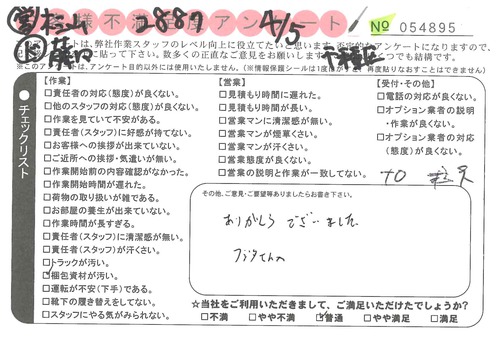 お客様不満足度アンケート
2887
4/5
№ 054895
トは、弊社作業スタッフのレベル向上に役立てたいと思います。否定的なアンケートになりますので、
に貼って下さい。数多くの正直なご意見をお聞かせ
つでも結構です。
※このアンケートは、アンケート目的以外には使用いたしません。(※情報保護シールは1度剥がすと、再度貼りなおすことはできません)
チェックリスト
【作業】
□責任者の対応(態度)が良くない。
□他のスタッフの対応(態度)が良くない。
□作業を見ていて不安がある。
□責任者(スタッフ)に好感が持てない。
□お客様への挨拶が出来ていない。
□ご近所への挨拶・気遣いが無い。
□作業開始前の内容確認がなかった。
□作業開始時間が遅れた。
□荷物の取り扱いが雑である。
□お部屋の養生が出来ていない。
□作業時間が長すぎる。
□責任者(スタッフ)に清潔感が無い。
□責任者(スタッフ)が汗くさい。
□トラックが汚い。
□梱包資材が汚い。
□運転が不安(下手)である。
□靴下の履き替えをしてない。
□スタッフにやる気がみられない。
【営業】
□見積もり時間に遅れた。
□見積もり時間が長い。
□営業マンに清潔感が無い。
□営業マンが煙草くさい。
□営業マンが汗くさい。
□営業態度が良くない。
□営業の説明と作業が一致してない。
【受付・その他】
□電話の対応が良くない。
□オプション業者の説明
・作業が良くない。
□オプション業者の対応
(態度)が良くない。
その他、ご意見・ご要望等ありましたらお書き下さい。
ありがとうございました
☆当社をご利用いただきまして、ご満足いただけたでしょうか?
□不満 □やや不満 □普通 □やや満足 □満足